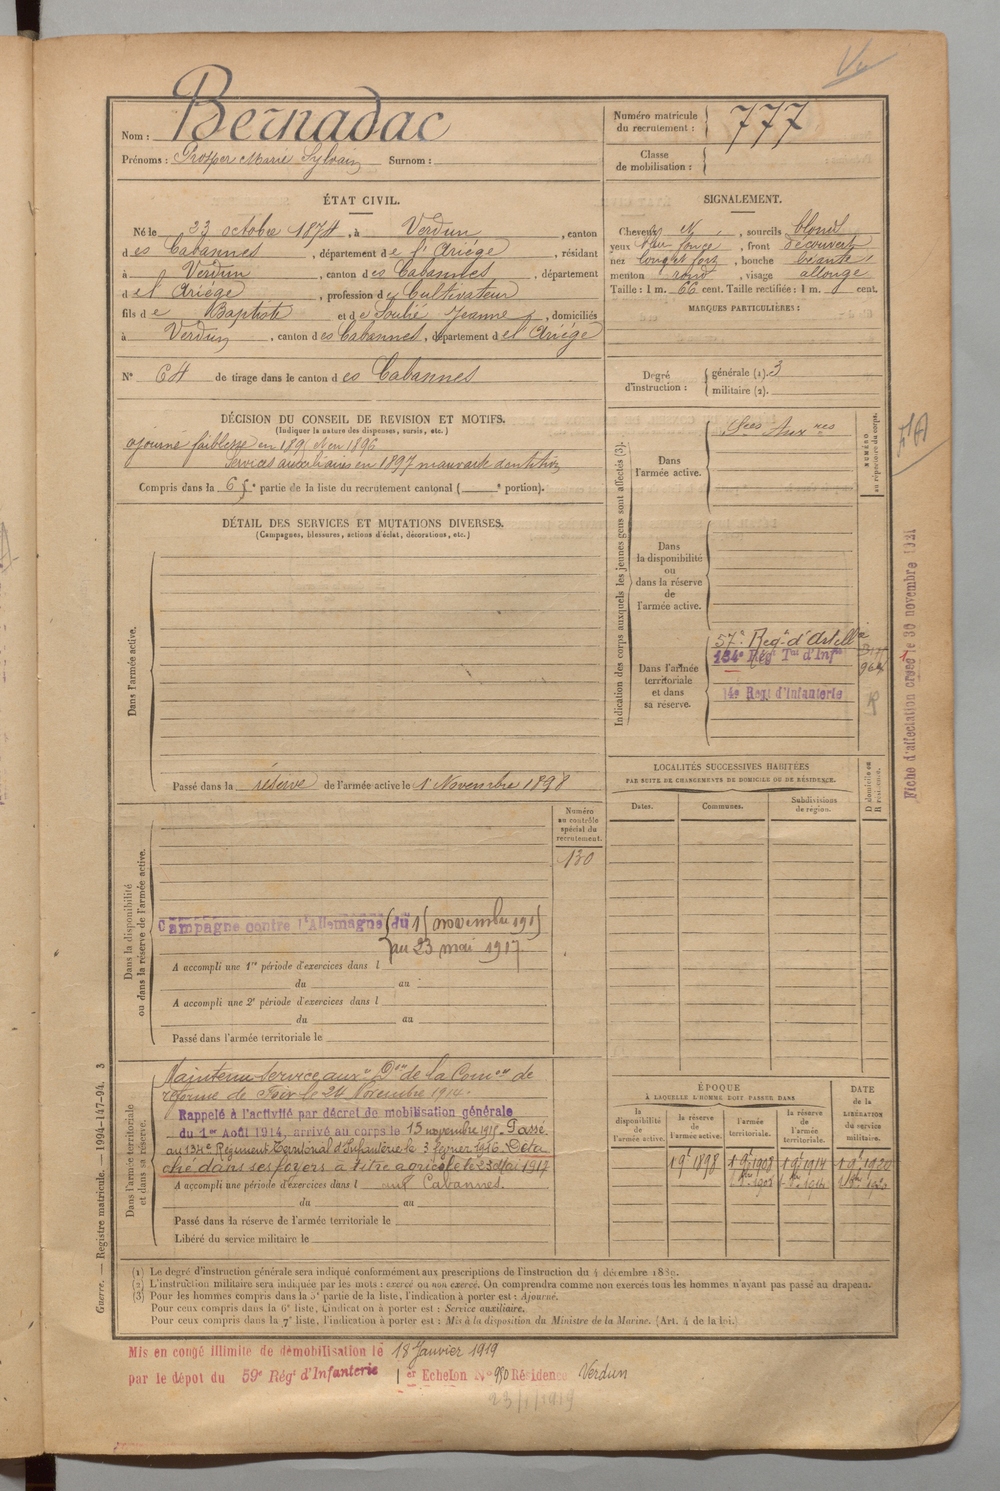 Nom : Bernadac
Prénoms : Prosper Marie Sylvain Surnom :
Numéro matricule du recrutement : 777
Classe de mobilisation :
ÉTAT CIVIL.
Né le 23 octobre 1874, à Verdun, canton
des Cabannes, département de l'Ariége, résidant
à Verdun, canton des Cabannes, département
de l'Ariége, profession de Cultivateur
fils de Baptiste et de Soulié Jeanne, domiciliés
à Verdun, canton des Cabannes, département de l'Ariége
N° 64 de tirage dans le canton des Cabannes
SIGNALEMENT.
Cheveux et, sourcils blond
yeux bleu foncé, front découvert
nez long et fort, bouche béante
menton rond, visage allongé
Taille : 1 m. 66 cent. Taille rectifiée : 1 m. cent.
MARQUES PARTICULIÈRES :
Degré d'instruction : générale (1). 3
militaire (2).
DÉCISION DU CONSEIL DE REVISION ET MOTIFS.
(Indiquer la nature des dispenses, sursis, etc.)
ajourné faiblesse en 1895 et en 1896
Services auxiliaires en 1897 mauvaise dentition
Compris dans la 6e partie de la liste du recrutement cantonal ( e portion).
DÉTAIL DES SERVICES ET MUTATIONS DIVERSES.
(Campagnes, blessures, actions d'éclat, décorations, etc.)
Dans l'armée active.
Passé dans la réserve de l'armée active le 1er Novembre 1898
Indication des corps auxquels les jeunes gens sont affectés (3).
NUMÉRO au répertoire du corps.
Dans l'armée active.
Sces Auxres
Dans la disponibilité ou dans la réserve de l'armée active.
Dans l'armée territoriale et dans sa réserve.
57e Regt d'Artelle
134e Régt Tal d'Infie
14e Regt d'Infanterie
R
Fiche d'affectation créée le 30 novembre 1921
LOCALITÉS SUCCESSIVES HABITÉES
PAR SUITE DE CHANGEMENTS DE DOMICILE OU DE RÉSIDENCE.
Dates. Communes. Subdivisions de région. D domicile ou R résidence.
Numéro au contrôle spécial du recrutement.
130
Dans la disponibilité ou dans la réserve de l'armée active.
Campagne contre l'Allemagne du 15 novembre 1915
au 23 mai 1917
A accompli une 1re période d'exercices dans l
du au
A accompli une 2e période d'exercices dans l
du au
Passé dans l'armée territoriale le
Dans l'armée territoriale et dans sa réserve.
Maintenu Service auxre Don de la Comon de
réforme de Foix le 24 Novembre 1914.
Rappelé à l'activité par décret de mobilisation générale
du 1er Août 1914, arrivé au corps le 15 novembre 1915. Passé
au 134e Régiment Territorial d'Infanterie le 3 février 1916. Déta
ché dans ses foyers à titre agricole le 23 Mai 1917
A accompli une période d'exercices dans l aux Cabannes.
du au
Passé dans la réserve de l'armée territoriale le
Libéré du service militaire le
ÉPOQUE
À LAQUELLE L'HOMME DOIT PASSER DANS
la disponibilité de l'armée active. la réserve de l'armée active. l'armée territoriale. la réserve de l'armée territoriale.
DATE de la LIBÉRATION du service militaire.
1 9e 1898 1 9e 1908 1 9e 1914 1 9e 1920
Guerre. — Registre matricule. — 1994-147-94. 3
(1) Le degré d'instruction générale sera indiqué conformément aux prescriptions de l'instruction du 4 décembre 1889.
(2) L'instruction militaire sera indiquée par les mots : exercé ou non exercé. On comprendra comme non exercés tous les hommes n'ayant pas passé au drapeau.
(3) Pour les hommes compris dans la 5e partie de la liste, l'indication à porter est : Ajourné.
Pour ceux compris dans la 6e liste, l'indication à porter est : Service auxiliaire.
Pour ceux compris dans la 7e liste, l'indication à porter est : Mis à la disposition du Ministre de la Marine. (Art. 4 de la loi.)
Mis en congé illimité de démobilisation le 18 Janvier 1919
par le dépot du 59e Régt d'Infanterie 1er Echelon N° 950 Résidence Verdun
23/1/1919